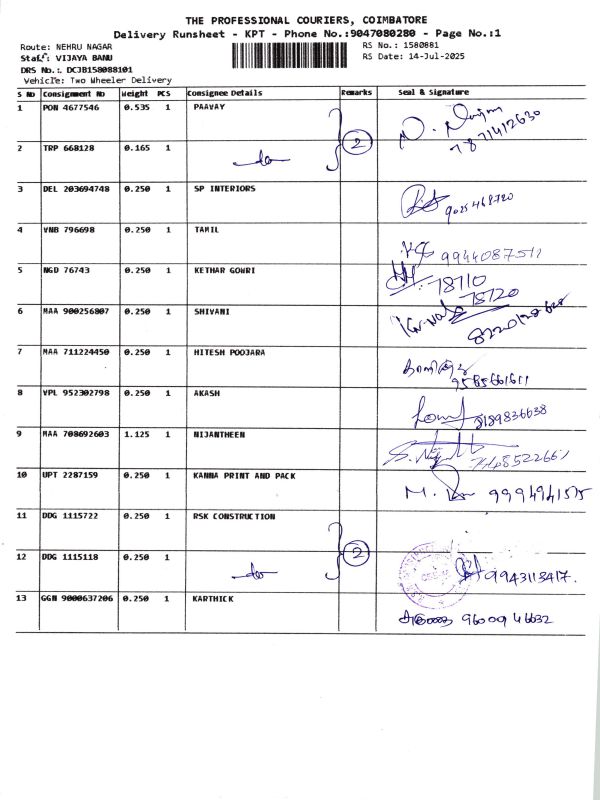 THE PROFESSIONAL COURIERS, COIMBATORE
Delivery Runsheet - KPT - Phone No.:9047080280 - Page No.:1
Route: NEHRU NAGAR RS No.: 1580881
Staff: VIJAYA BANU RS Date: 14-Jul-2025
DRS No.: DCJB158088101
Vehicle: Two Wheeler Delivery
S No Consignment No Weight PCS Consignee Details Remarks Seal & Signature
1 PON 4677546 0.535 1 PAAVAY
7871412630
2 TRP 668128 0.165 1 do 2
3 DEL 203694748 0.250 1 SP INTERIORS
9025468720
4 VNB 796698 0.250 1 TAMIL
9944087511
5 NGD 76743 0.250 1 KETHAR GOWRI
78710
78720
6 MAA 900256807 0.250 1 SHIVANI
7 MAA 711224450 0.250 1 HITESH POOJARA
9585661611
8 VPL 952302798 0.250 1 AKASH
8189836638
9 MAA 708692603 1.125 1 NIJANTHEEN
10 UPT 2287159 0.250 1 KANNA PRINT AND PACK
9994941515
11 DDG 1115722 0.250 1 RSK CONSTRUCTION
12 DDG 1115118 0.250 1 do 2
9943113417.
13 GGN 9000637206 0.250 1 KARTHICK
9600946632